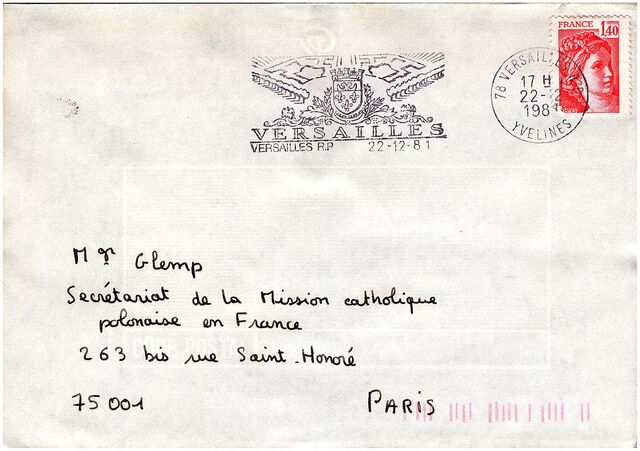 FRANCE 1,40
78 VERSAILLES
17 H
22-12
1981
YVELINES
VERSAILLES
VERSAILLES R.P 22-12-81
Mgr Glemp
Secrétariat de la Mission catholique
polonaise en France
263 bis rue Saint-Honoré
75001 PARIS